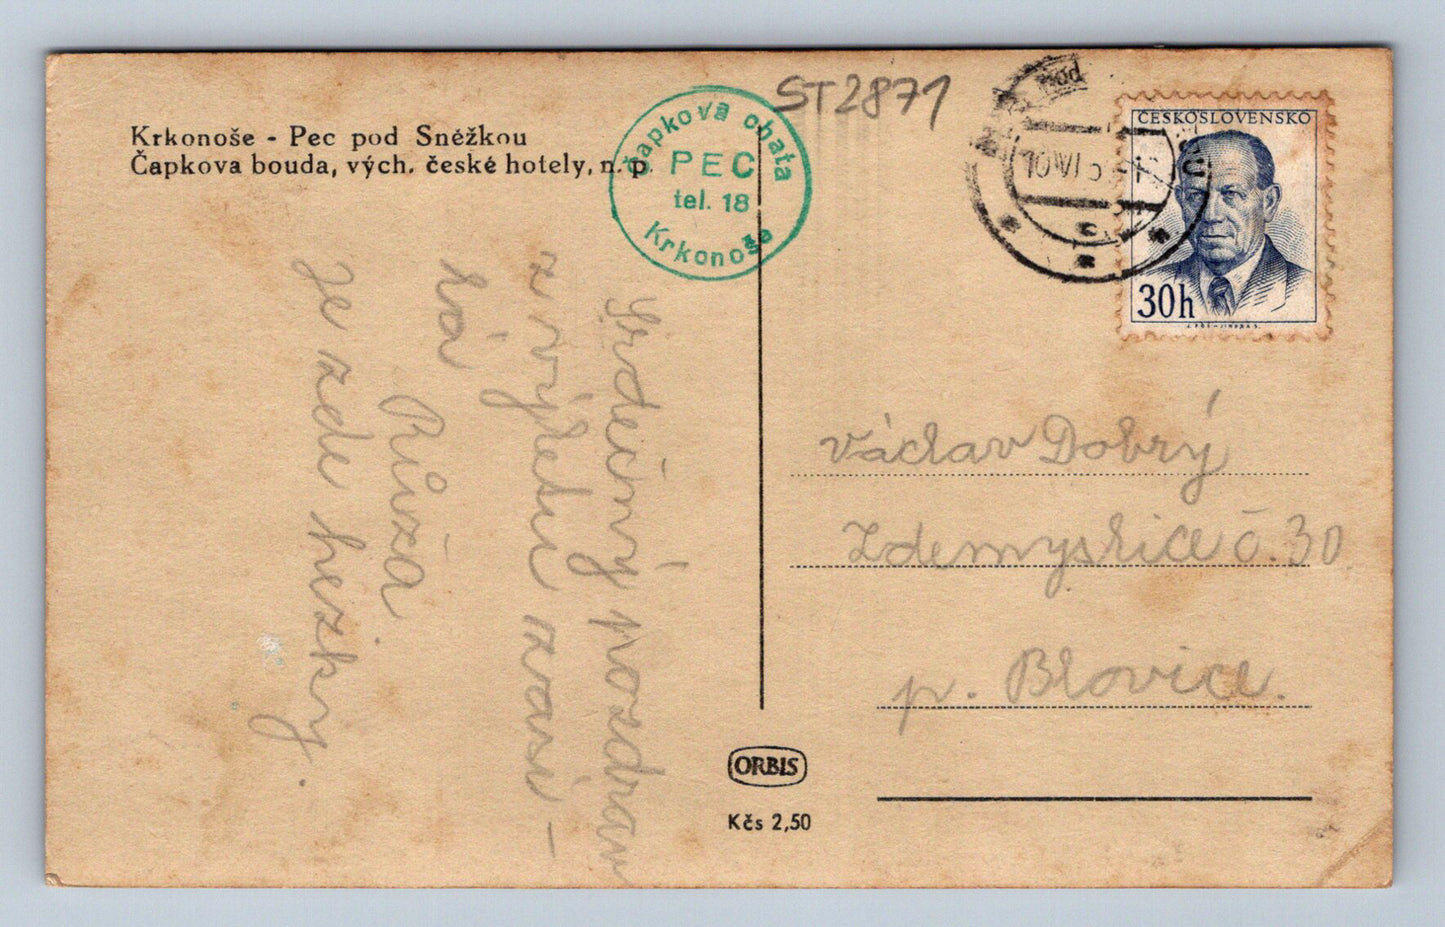 Krkonoše - Pec pod Sněžkou
Čapkova bouda, vých. české hotely, n. p.
Čapkova chata
PEC
tel. 18
Krkonoše
ST2871
10 VI 5
ČESKOSLOVENSKO
30h
Srdečný pozdrav
z výletu zasí-
lá
Růža
Je zde hezky.
Václav Dobrý
Zdemyslice č. 30
p. Blovice.
ORBIS
Kčs 2,50